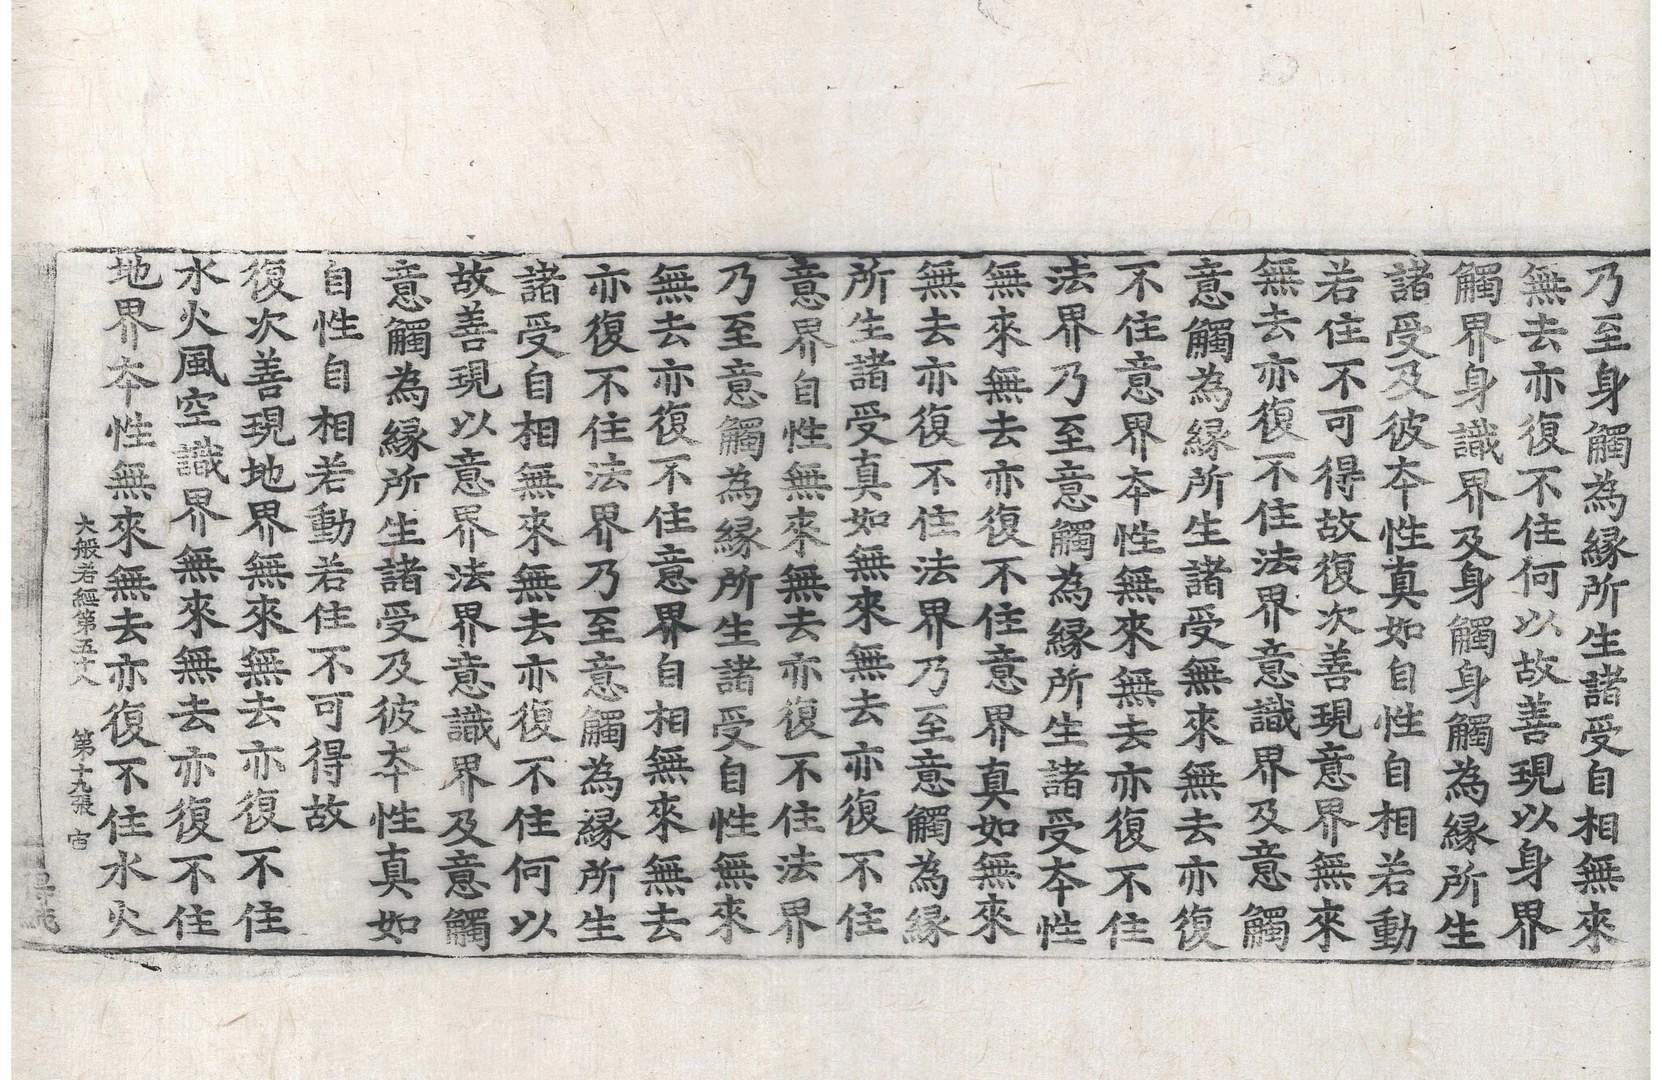 乃至身觸為縁所生諸受自相無來
無去亦復不住何以故善現以身界
觸界身識界及身觸身觸為縁所生
諸受及彼夲性真如自性自相若動
若住不可得故復次善現意界無來
無去亦復不住法界意識界及意觸
意觸為縁所生諸受無來無去亦復
不住意界夲性無來無去亦復不住
法界乃至意觸為縁所生諸受夲性
無來無去亦復不住意界真如無來
無去亦復不住法界乃至意觸為縁
所生諸受真如無來無去亦復不住
意界自性無來無去亦復不住法界
乃至意觸為縁所生諸受自性無來
無去亦復不住意界自相無來無去
亦復不住法界乃至意觸為縁所生
諸受自相無來無去亦復不住何以
故善現以意界法界意識界及意觸
意觸為縁所生諸受及彼夲性真如
自性自相若動若住不可得故
復次善現地界無來無去亦復不住
水火風空識界無來無去亦復不住
地界夲性無來無去亦復不住水火
大般若經第五十六　第十九張　宙